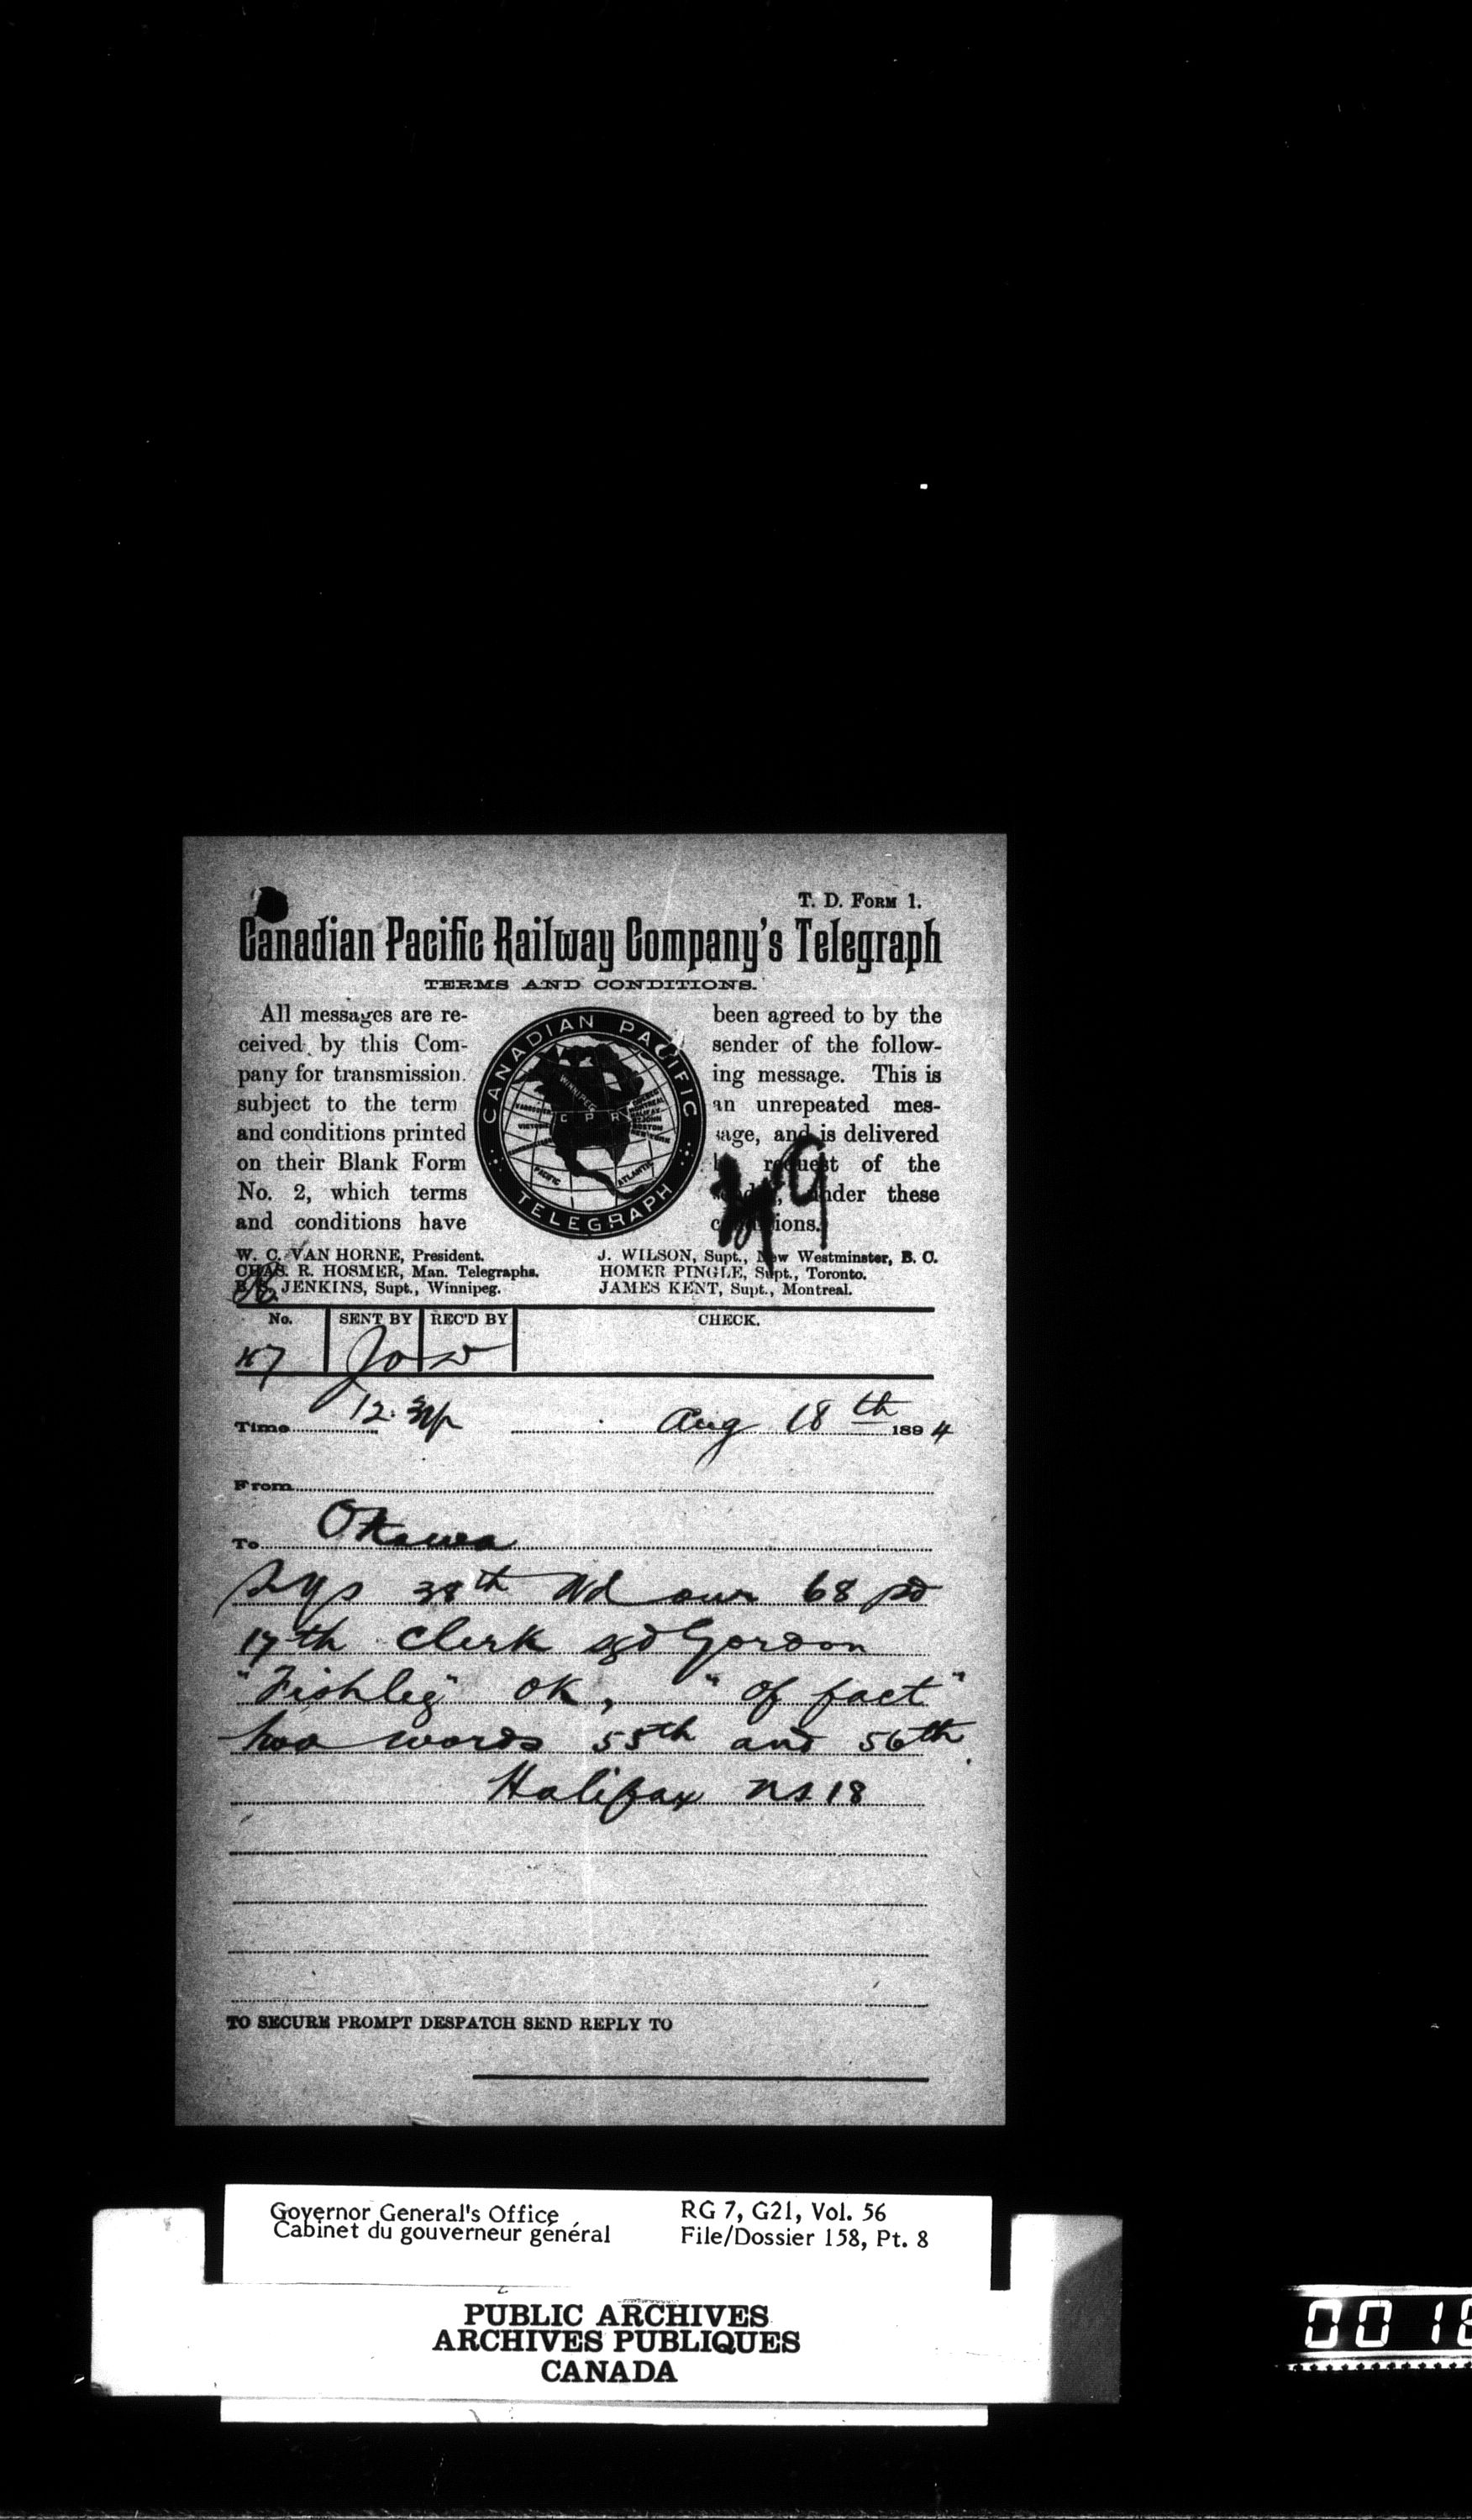 T. D. FORM 1.
Canadian Pacific Railway Company's Telegraph
TERMS AND CONDITIONS.
All messages are re-
ceived by this Com-
pany for transmission
subject to the term
and conditions printed
on their Blank Form
No. 2, which terms
and conditions have
CANADIAN PACIFIC
WINNIPEG
C P R
PACIFIC
ATLANTIC
TELEGRAPH
been agreed to by the
sender of the follow-
ing message. This is
an unrepeated mes-
sage, and is delivered
request of the
under these
conditions.
W. C. VAN HORNE, President.
CHAS. R. HOSMER, Man. Telegraphs.
JENKINS, Supt., Winnipeg.
J. WILSON, Supt., New Westminster, B. C.
HOMER PINGLE, Supt., Toronto.
JAMES KENT, Supt., Montreal.
No. SENT BY REC'D BY CHECK.
47 Jo
Time 12. Aug 18th 1894
From
To Ottawa
38th Wd our 68 pd
17th Clerk sgd Gordon
"Fishleg" OK, "of fact"
two words 55th and 56th
Halifax NS 18
TO SECURE PROMPT DESPATCH SEND REPLY TO
Governor General's Office
Cabinet du gouverneur général
RG 7, G21, Vol. 56
File/Dossier 158, Pt. 8
PUBLIC ARCHIVES
ARCHIVES PUBLIQUES
CANADA
0018